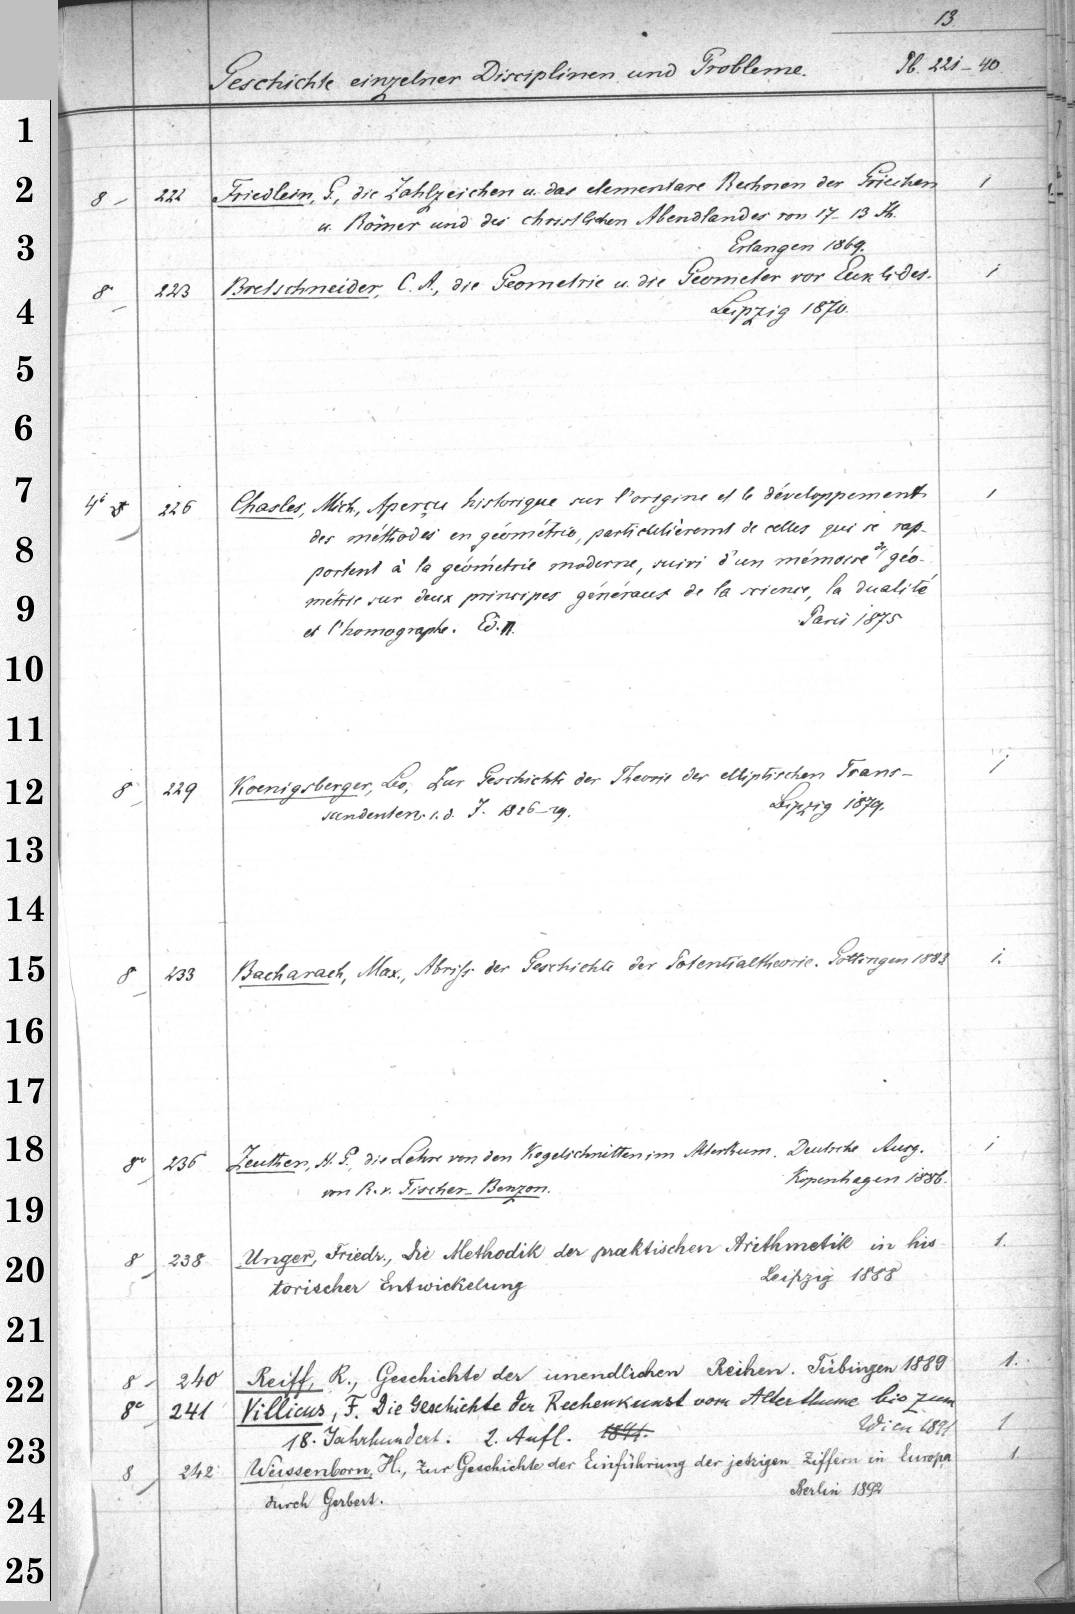 13
Geschichte einzelner Disciplinen und Probleme. Pb. 221-40
1
2
8 222 Friedlein, G., die Zahlzeichen u. das elementare Rechnen der Griechen 1
u. Römer und des christlichen Abendlandes von 17-13 Jh.
3
Erlangen 1869.
8 223 Bretschneider, C. A., die Geometrie u. die Geometer vor Euklides. 1
4
Leipzig 1870.
5
6
7
4° 226 Chasles, Mich, Aperçu historique sur l'origine et le développement 1
des méthodes en géométrie, particulièremt de celles qui se rap-
8
portent à la géométrie moderne, suivi d'un mémoire de géo-
9
métrie sur deux principes généraux de la science, la dualité
et l'homographe. Ed. II. Paris 1875
10
11
12
8 229 Koenigsberger, Leo, Zur Geschichte der Theorie der elliptischen Trans- 1
scendenten i. d. J. 1826-29. Leipzig 1879.
13
14
15
8 233 Bacharach, Max., Abriss der Geschichte der Potentialtheorie. Göttingen 1883 1.
16
17
18
8° 236 Zeuthen, H. G., die Lehre von den Kegelschnitten im Altertum. Deutsche Ausg. 1
von R. v. Fischer-Benzon. Kopenhagen 1886.
19
20
8 238 Unger, Friedr., Die Methodik der praktischen Arithmetik in his- 1.
torischer Entwickelung Leipzig 1888
21
22
8 240 Reiff, R., Geschichte der unendlichen Reihen. Tübingen 1889 1.
8° 241 Villicus, F. Die Geschichte der Rechenkunst vom Alterthume bis zum
18. Jahrhundert. 2. Aufl. 1891. Wien 1891 1
23
8 242 Weissenborn, H., Zur Geschichte der Einführung der jetzigen Ziffern in Europa 1
24
durch Gerbert. Berlin 1892
25